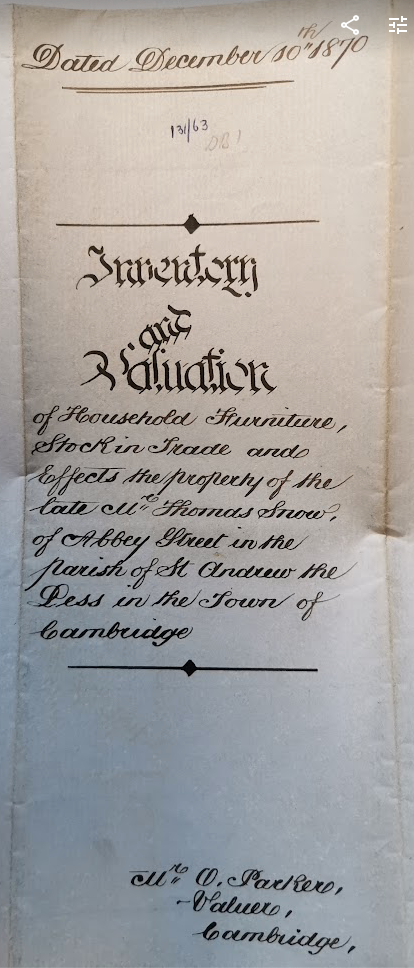 Dated December 10th 1870
131/63
DB1
Inventory
and
Valuation
of Household Furniture,
Stock in Trade and
Effects the property of the
late Mr Thomas Snow,
of Abbey Street in the
parish of St Andrew the
Less in the Town of
Cambridge
Mr O. Parker,
Valuer,
Cambridge,